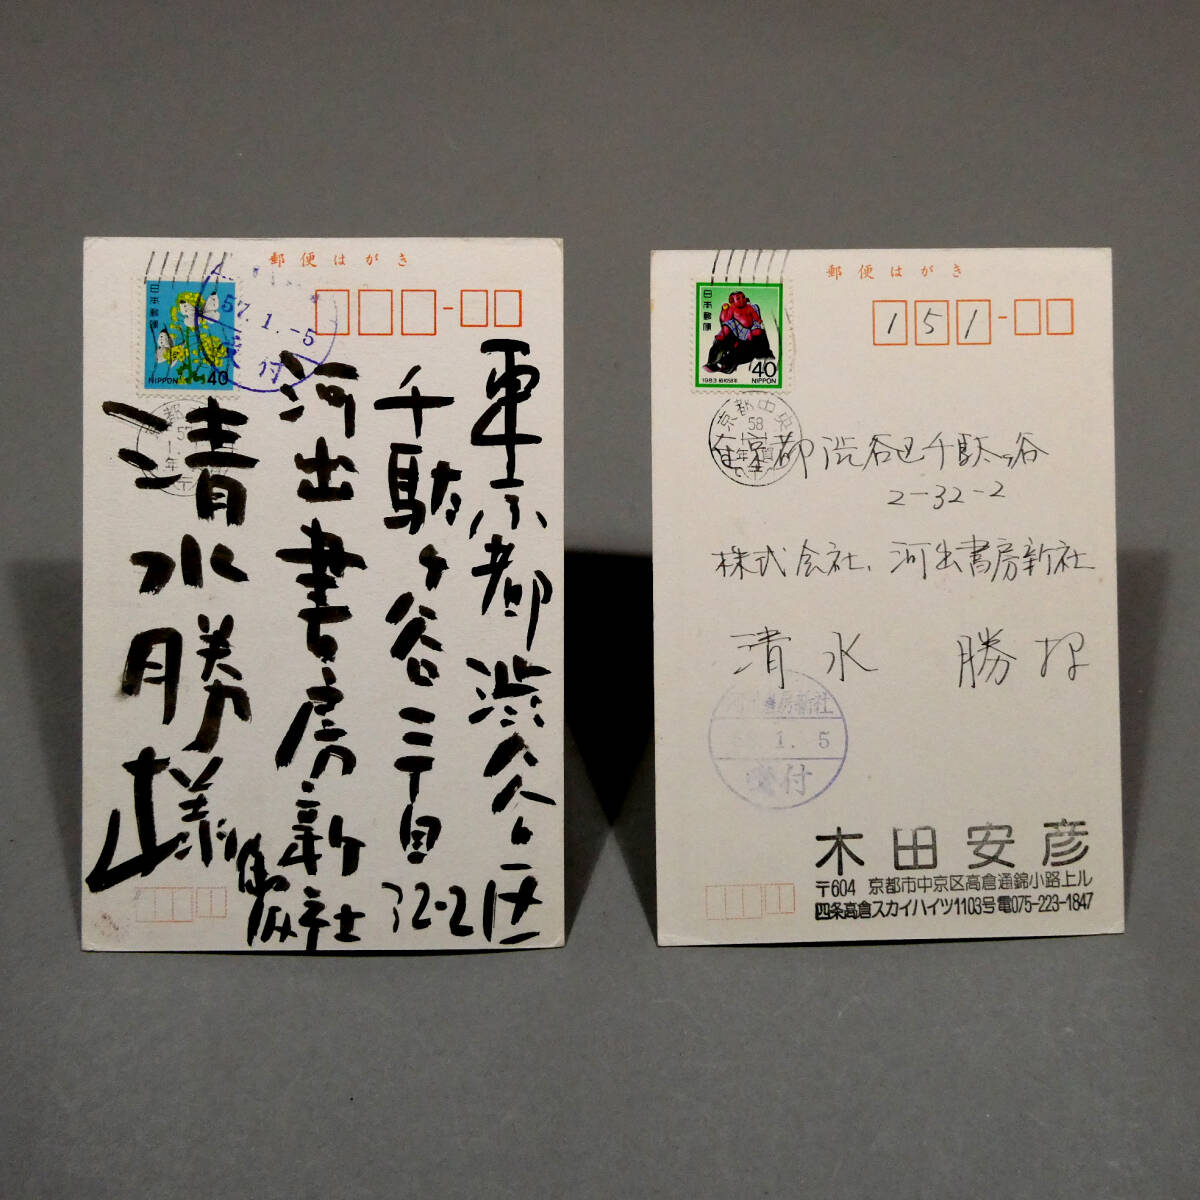 郵便はがき
日本郵便
NIPPON 40
57.1.-5
付
東京都渋谷区
千駄ヶ谷二丁目32-2
河出書房新社
清水勝様
郵便はがき
日本郵便
40
1983 昭和58年 NIPPON
151
京都中央
58
東京都渋谷区千駄ヶ谷
2-32-2
株式会社、河出書房新社
清水 勝様
河出書房新社
1. 5
受付
木田安彦
〒604 京都市中京区高倉通錦小路上ル
四条高倉スカイハイツ1103号電075-223-1847